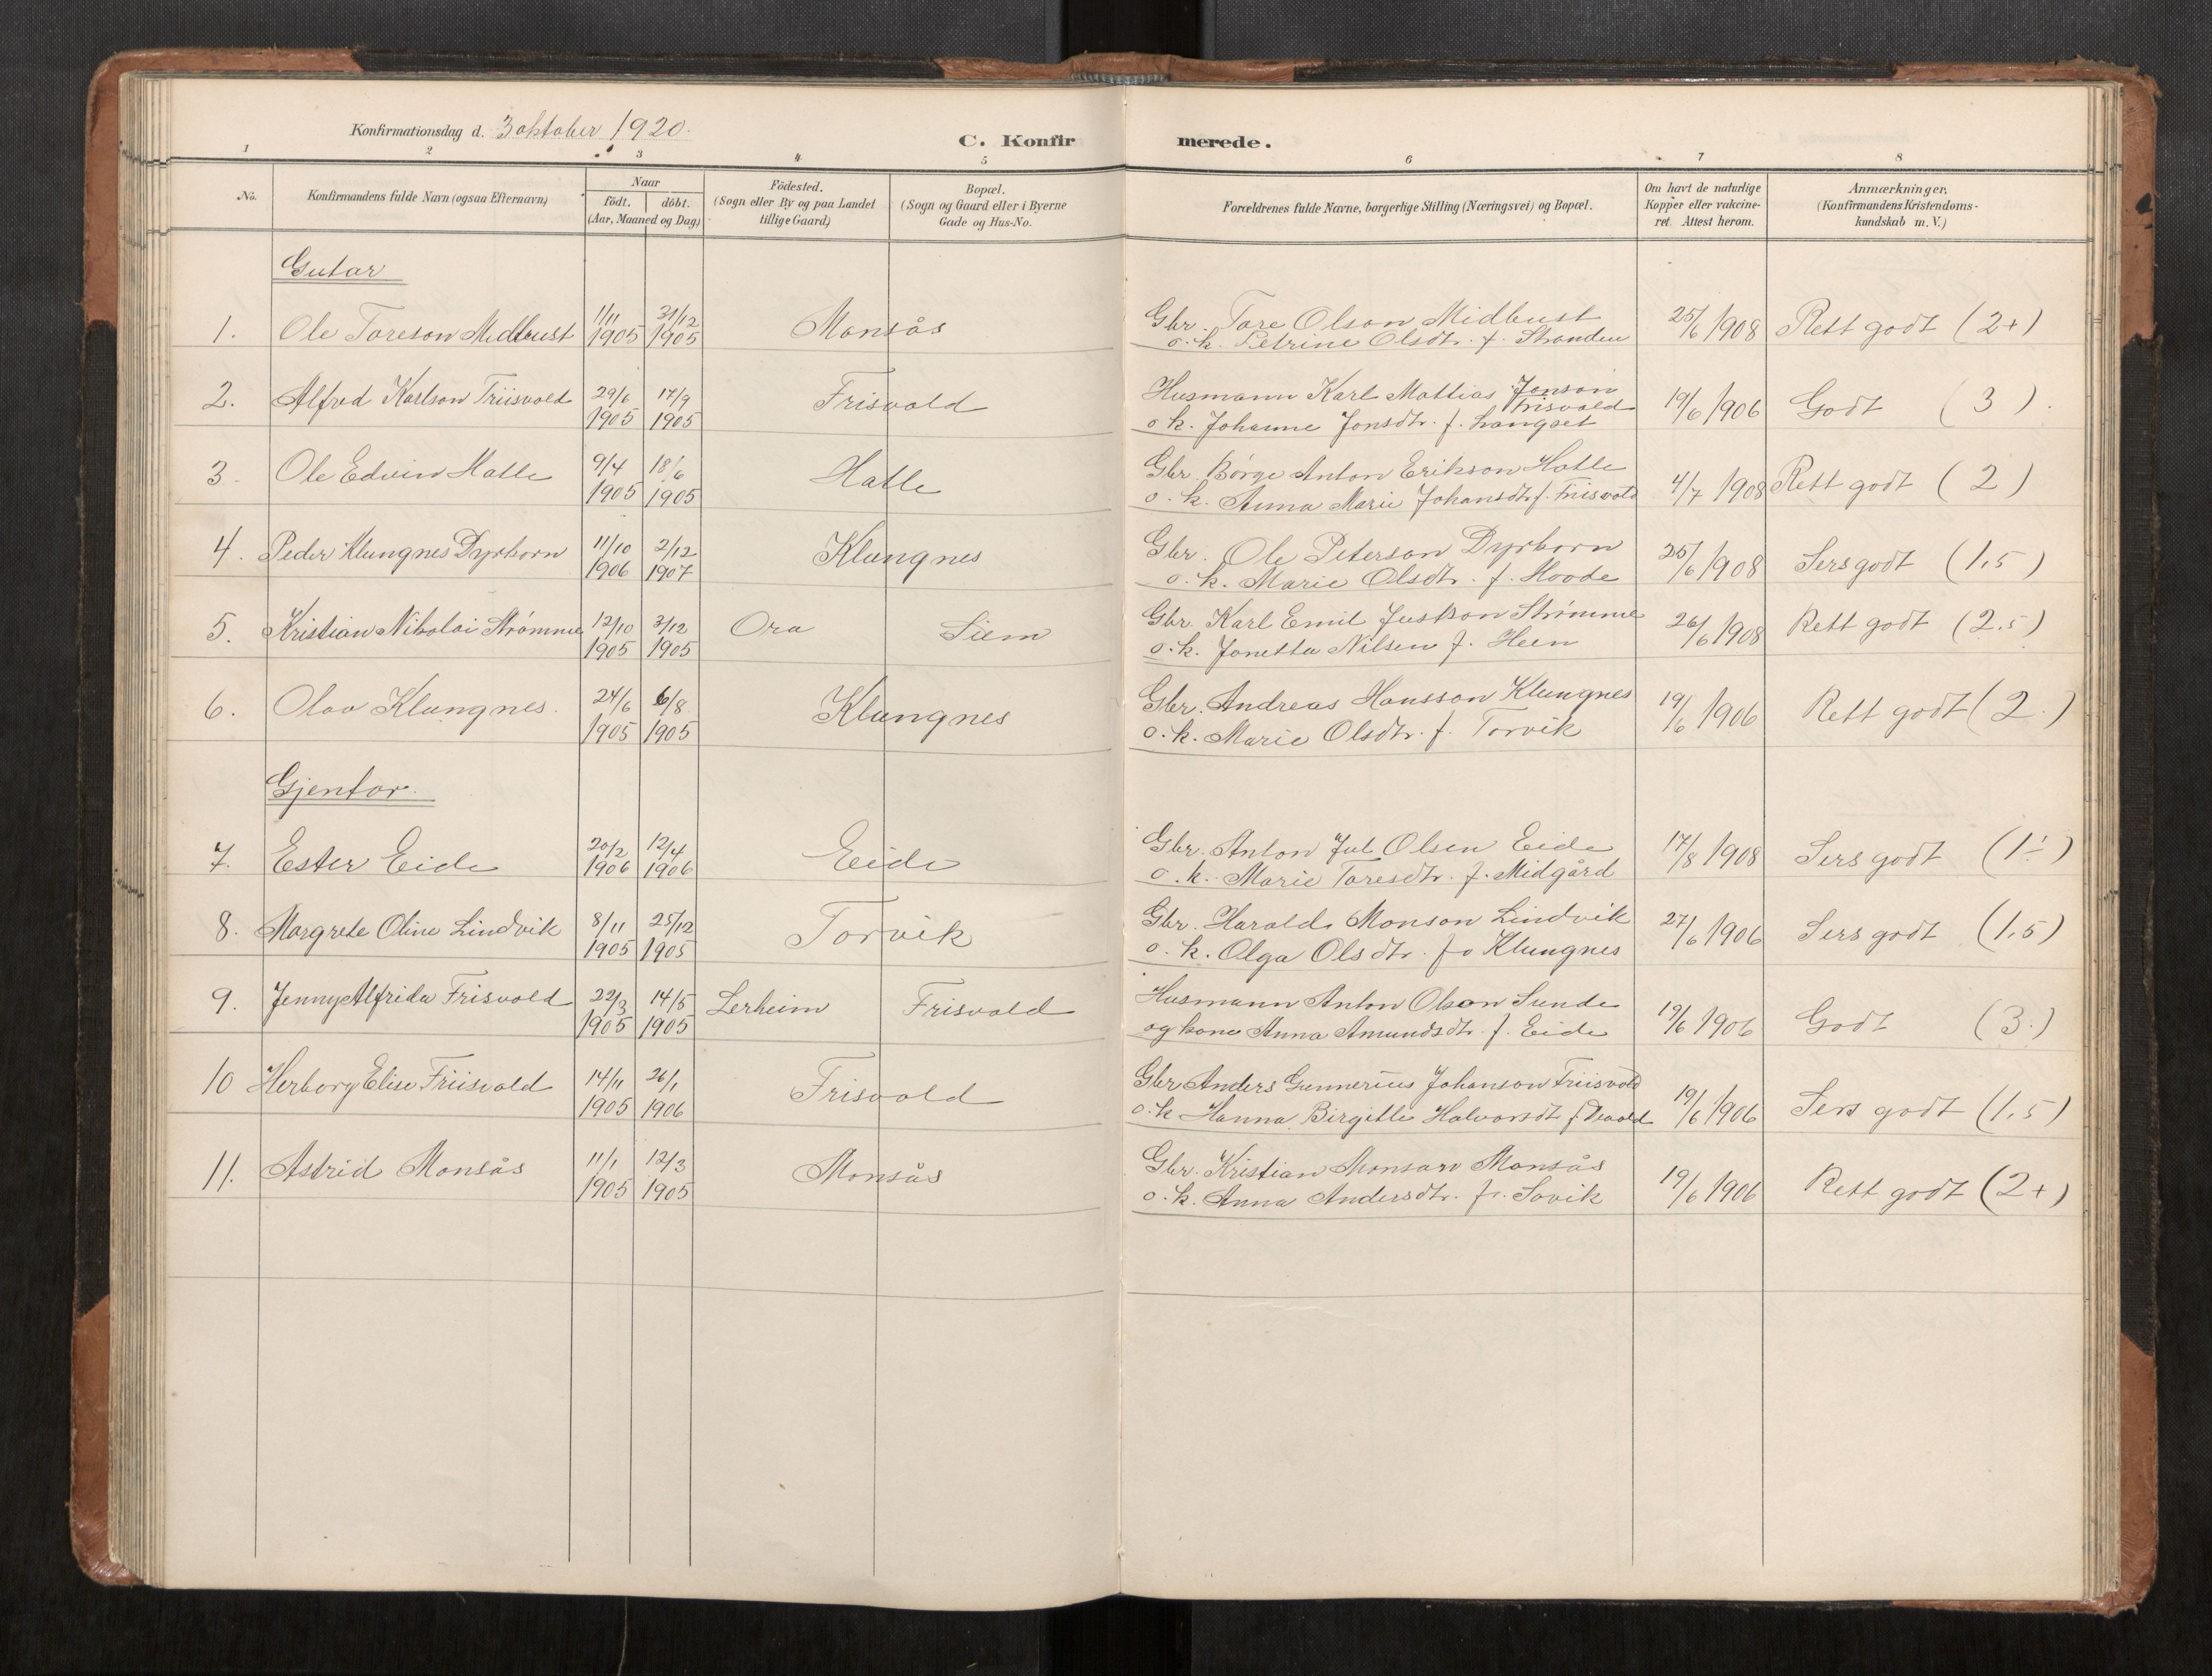 Konfirmationsdag d. 3 oktober 1920.
C. Konfirmerede.
1 2 3 4 5 6 7 8
No.
Konfirmandens fulde Navn (ogsaa Efternavn)
Naar
födt. döbt.
(Aar, Maaned og Dag)
Födested.
(Sogn eller By og paa Landet
tillige Gaard)
Bopæl.
(Sogn og Gaard eller i Byerne
Gade og Hus-No.
Forældrenes fulde Navne, borgerlige Stilling (Næringsvei) og Bopæl.
Om havt de naturlige
Kopper eller vakcine-
ret. Attest herom.
Anmærkninger.
(Konfirmandens Kristendoms-
kundskab m. V.)
Gutar
1. Ole Toreson Midbust 1/11 1905 31/12 1905 Monsås Gbr. Tore Olson Midbust 25/6 1908 Rett godt (2+)
o. k. Petrine Olsdtr. f. Stranden
2. Alfred Karlson Friisvold 29/6 1905 17/9 1905 Frisvold Husmann Karl Mattias Jonson Frisvold 19/6 1906 Godt (3).
o k. Johanne Jonsdtr. f. Langset
3. Ole Edvin Hatle 9/4 1905 18/6 1905 Hatle Gbr. Börge Anton Erikson Hatle 4/7 1908 Rett godt (2)
o. k. Anna Marie Johansdtr f. Friisvold
4. Peder Klungnes Dyrhorn 11/10 1906 2/12 1907 Klungnes Gbr. Ole Peterson Dyrhorn 25/6 1908 Sers godt (1,5)
o. k. Marie Olsdtr. f. Hovde
5. Kristian Nikolai Strømme 12/10 1905 3/12 1905 Ora Siem Gbr. Karl Emil Justson Strømme 26/6 1908 Rett godt (2.5)
o. k. Jonetta Nilsen f. Heen
6. Olav Klungnes. 24/6 1905 6/8 1905 Klungnes Gbr. Andreas Hansson Klungnes 19/6 1906 Rett godt (2.)
o. k. Marie Olsdtr. f. Torvik
Gjentor.
7. Ester Eide 20/2 1906 12/4 1906 Eide Gbr. Anton Jul Olsen Eide 17/8 1908 Sers godt (1÷)
o. k. Marie Toresdtr. f. Midgård
8. Margrete Oline Lindvik 8/11 1905 25/12 1905 Torvik Gbr. Harald Monson Lindvik 27/6 1906 Sers godt (1,5)
o. k. Olga Olsdtr. fo Klungnes
9. Jenny Alfrida Frisvold 22/3 1905 14/5 1905 Lerheim Frisvold Husmann Anton Olson Sunde 19/6 1906 Godt (3.)
og kone Anna Amundsdtr. f. Eide
10 Herborg Elise Friisvold 14/11 1905 26/1 1906 Frisvold Gbr Anders Gunnerius Johanson Friisvold 19/6 1906 Sers godt (1,5)
o. k Hanna Birgitte Halvorsdt f.
11. Astrid Monsås 11/1 1905 12/3 1905 Monsås Gbr. Kristian Monson Monsås 19/6 1906 Rett godt (2+)
o. k. Anna Andersdtr. fr. Sovik